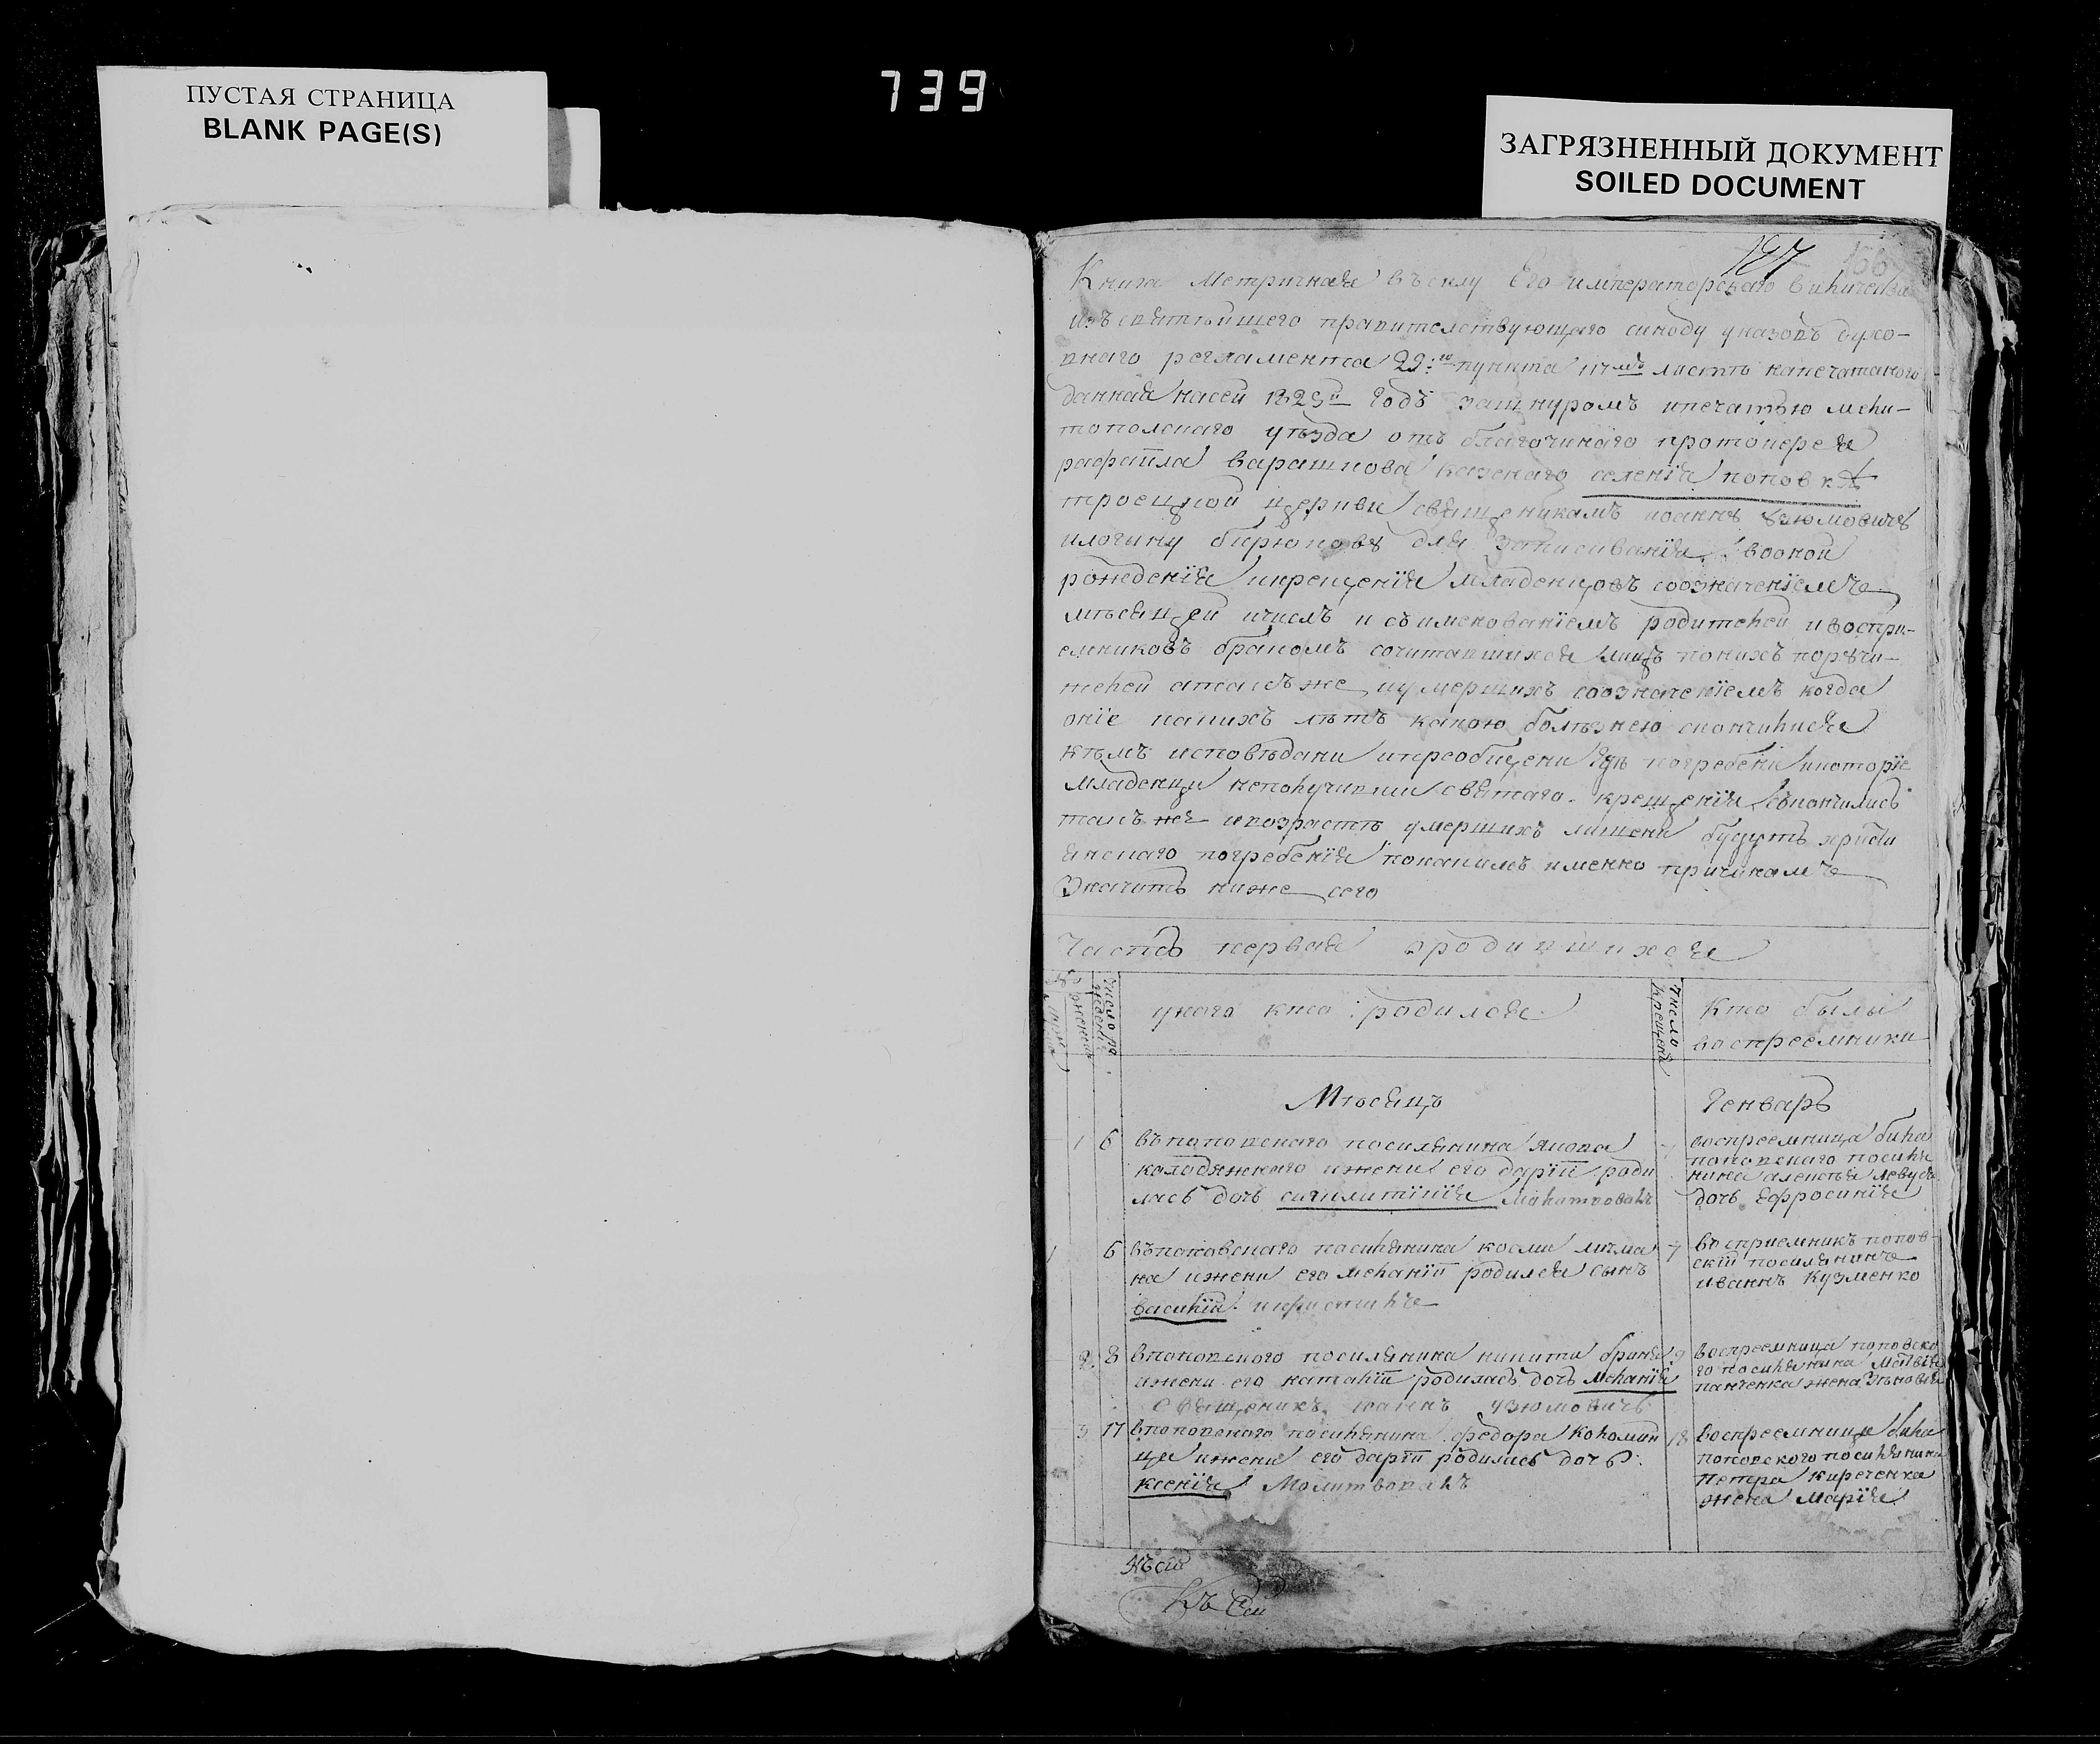 ПУСТАЯ СТРАНИЦА
BLANK PAGE(S)
739
ЗАГРЯЗНЕННЫЙ ДОКУМЕНТ
SOILED DOCUMENT
Книга Метричная въ силу Его императорскаго
изъ святѣйшего правителствующаго синоду указовъ духо-
внаго регламента 29:го пункта листѣ напечатаного
данная на сей годъ за шнуромъ и печатью мели-
тополскаго уѣзда отъ благочиннаго протоиерея
рафаила варашкова казенаго селенїя поповкѣ
троецкой церкви священикамъ иоанну узюмовичу
и логину бирюкову для записиванїя вооной
рожденїя и крещенїя младенцовъ соозначенїемъ
мѣсяцей и числъ и съименованїемъ родителей и воспри-
емниковъ бракомъ сочитавшихся лицъ по нихъ поручи-
телей а такъ же и умершихъ соозначенїемъ когда
онїе какихъ лѣтъ какою болѣзнею скончилися
кѣмъ исповѣдани и преобщени гдѣ погребени и которїе
младенци неполучивши святаго крещенїя скончились
такъ же и возрастѣ умершихъ лишени будутъ христи
янскаго погребенїя по какимъ именно причинамъ
Значитъ ниже сего
Часть первая о родившихся
Число рожденїя
у кого кто родился
Число крещенїя
Кто были
воспреемники
Мѣсяцъ Генварь
1 6 въ поповского поселянина якова
колодяжнаго и жени его дарїи роди
лась дочь Молитвовалъ
воспреемница била
поповскаго поселя
нина алексѣя
дочь Ефросинїя
1 6 въ поповскаго поселянина косми
на и жени его меланїи родился сынъ
василїй
7 восприемникъ попов-
скїй поселянинъ
иваннъ кузменко
2 8 в поповского поселянина никити
и жени его наталїи родилась дочь меланїя
священикъ иоаннъ узюмовичъ
9 воспреемница поповско
го поселянина матвїя
панченка жена Зѣновїя
3 17 в поповского поселянина федора коломий
ця и жени его дарїи родилась дочь
ксенїя Молитвовалъ
18 воспреемница била
поповского поселянина
петра киреченка
жена Марїя
Къ сей
Къ Сей